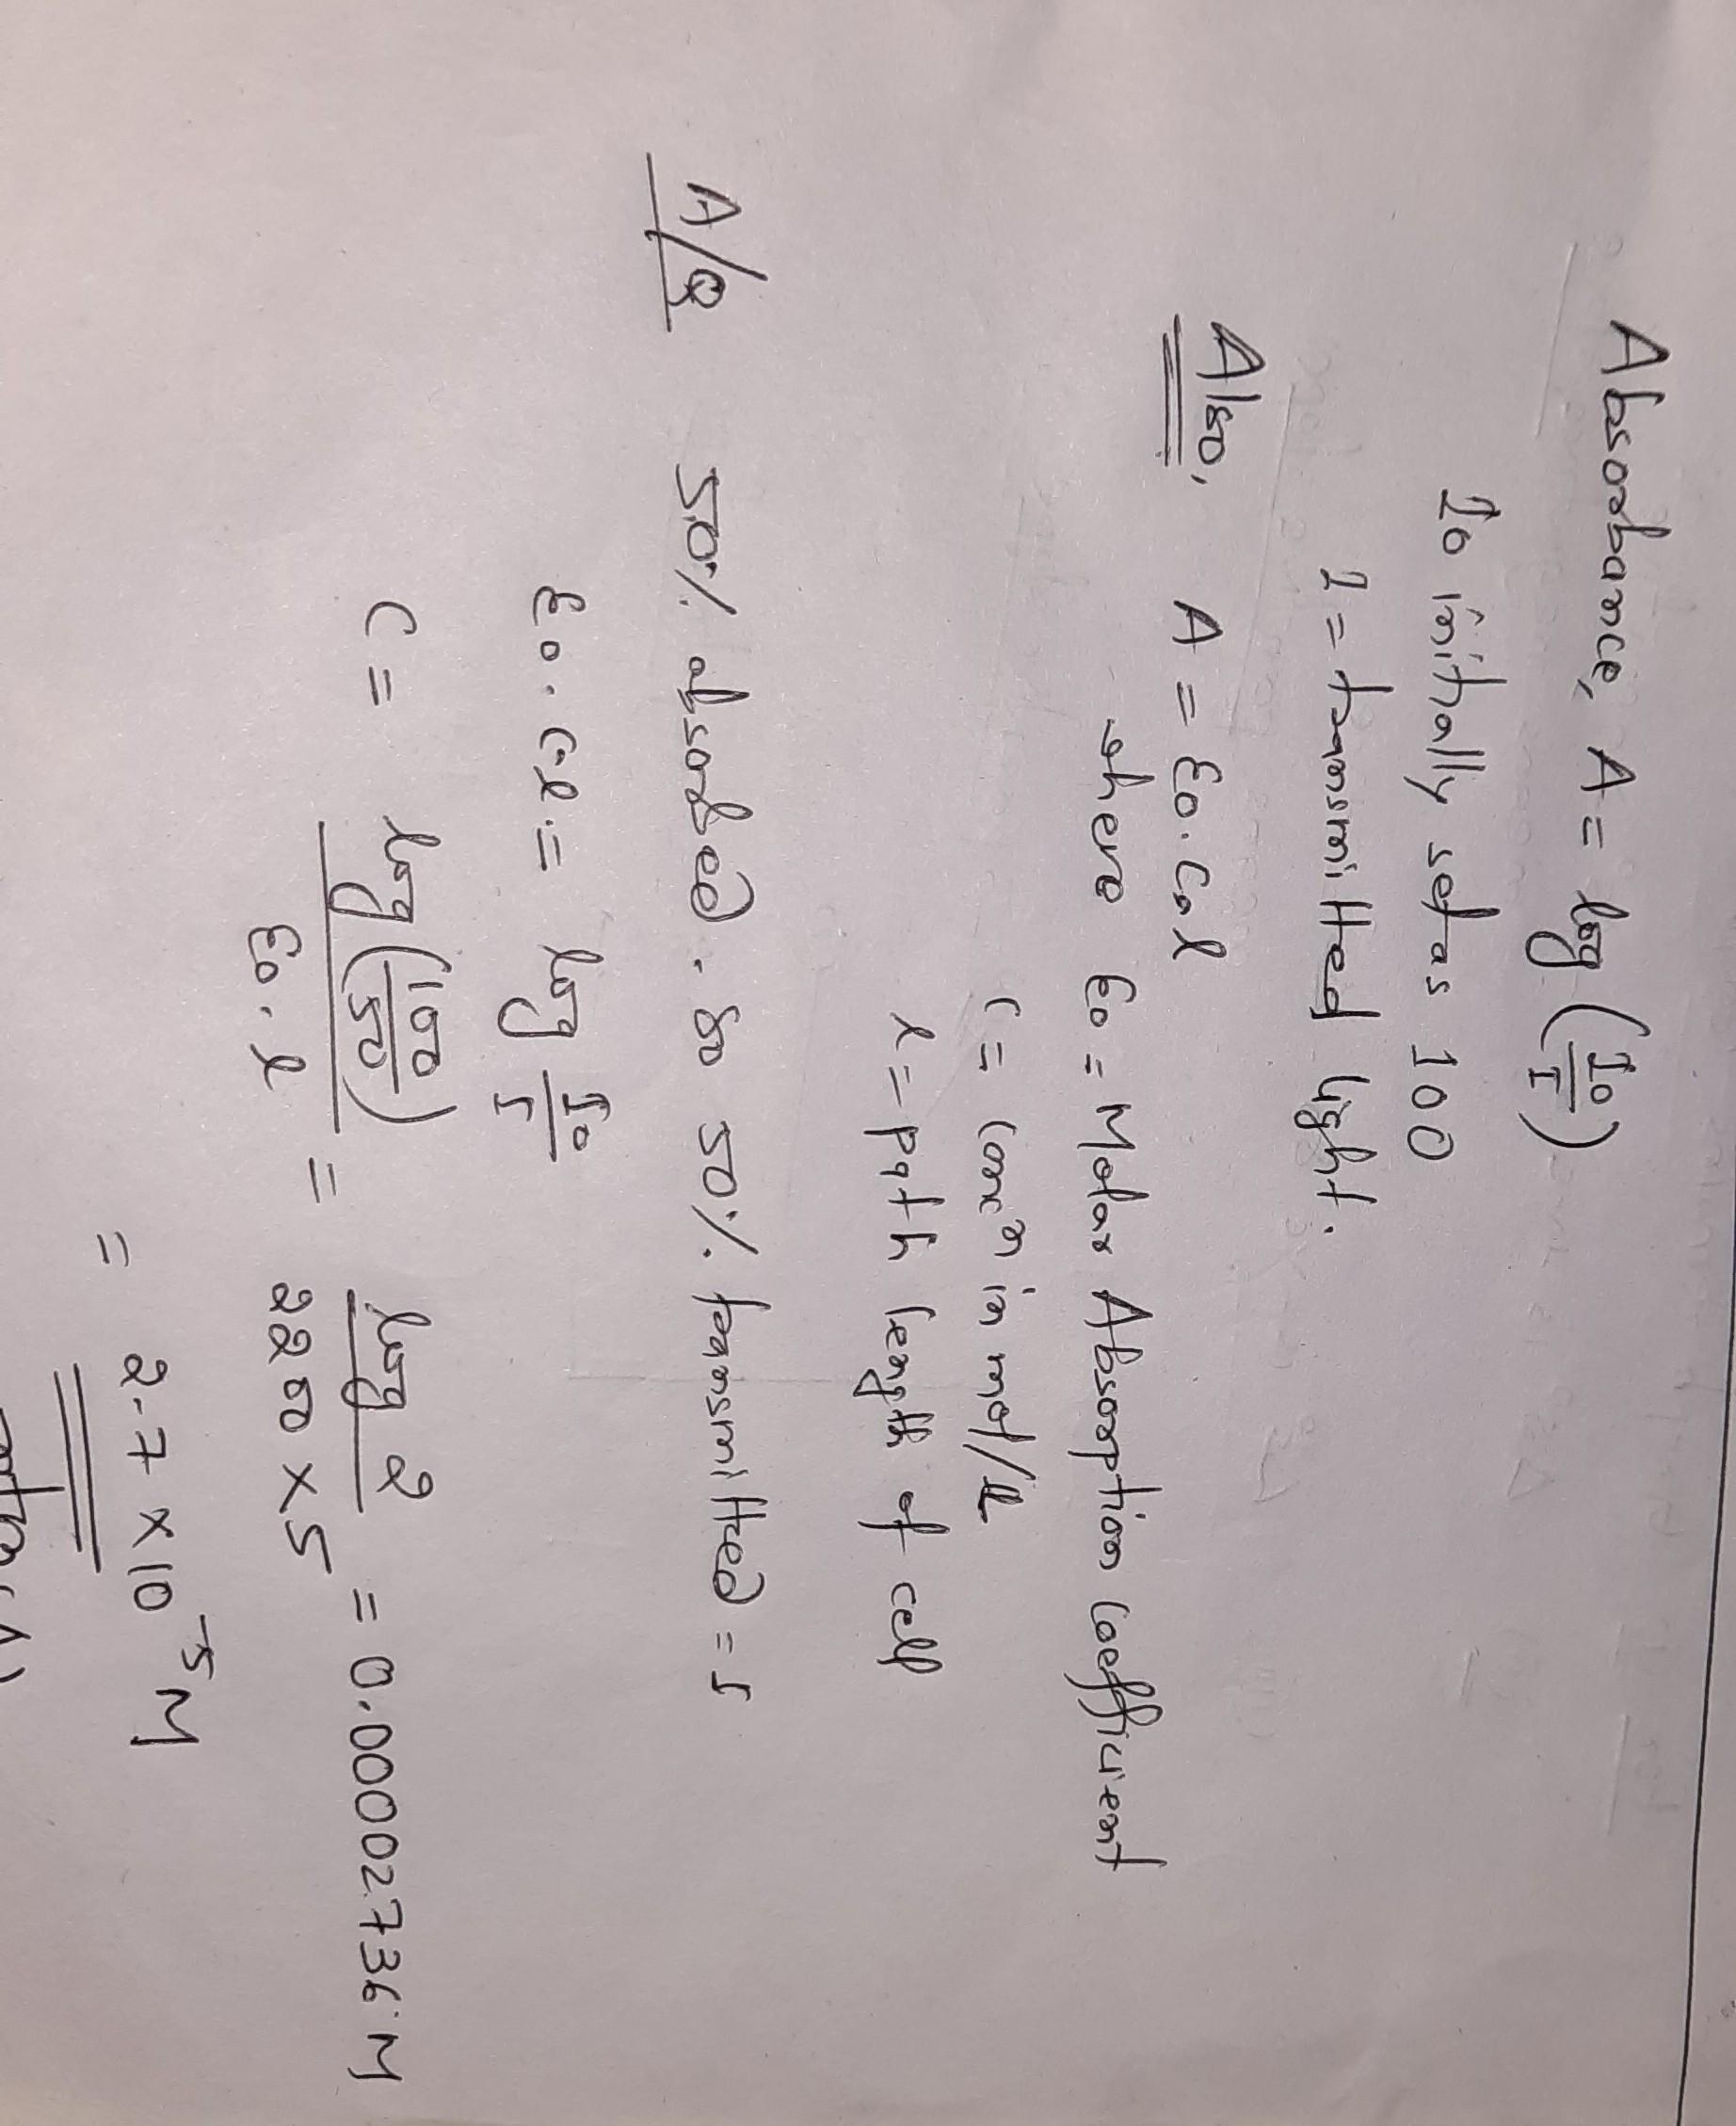 Absorbance, A = log (I₀/I)
I₀ initially set as 100
I = transmitted light.
Also, A = ε₀.C.l
where ε₀ = Molar Absorption Coefficient
C = Concⁿ in mol/l
l = Path length of cell
A/Q 50% absorbed. so 50% transmitted = I
ε₀.C.l. = log I₀/I
C = log(100/50) / ε₀.l = log 2 / 2200 × 5 = 0.00002736 M
= 2.7 × 10⁻⁵ M